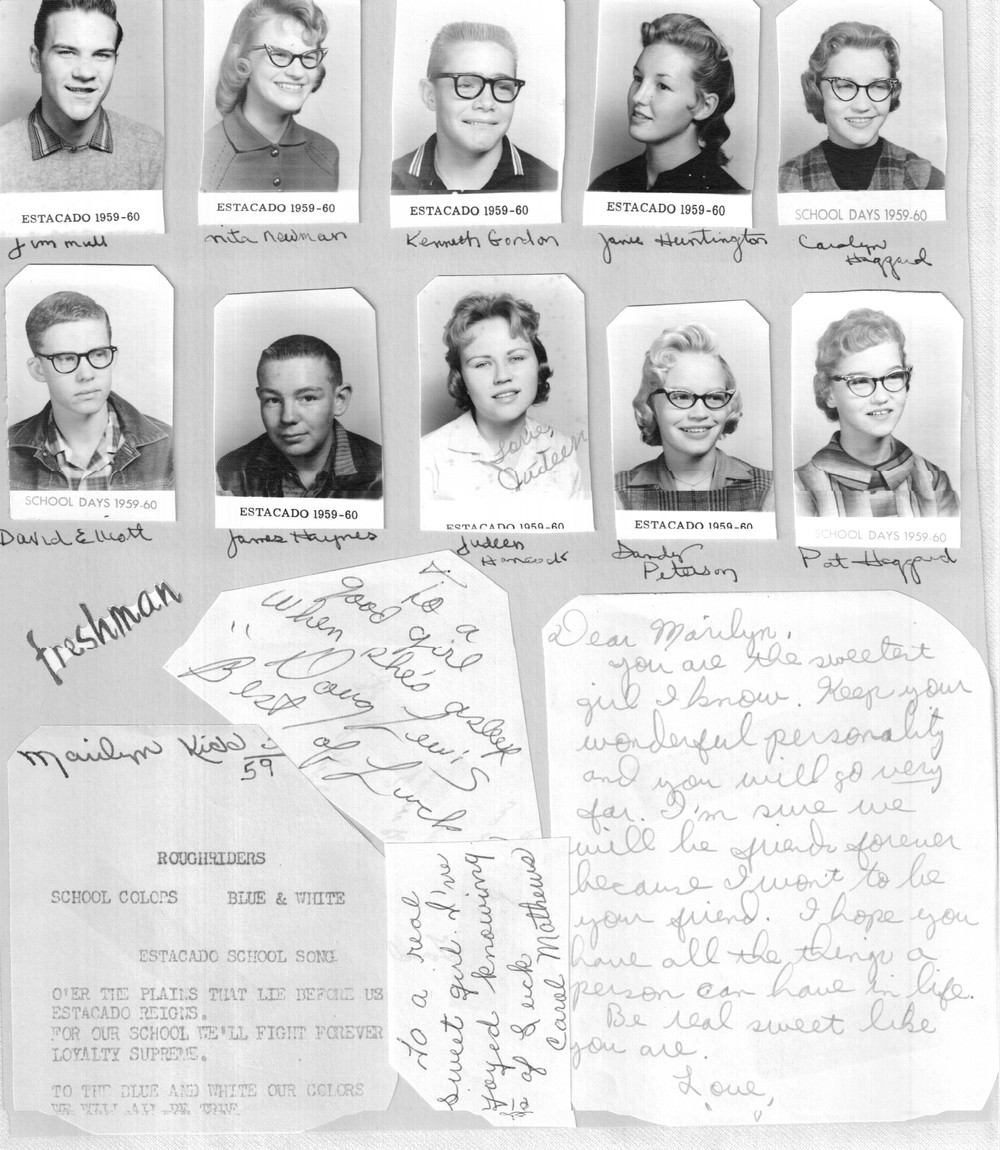 ESTACADO 1959-60
ESTACADO 1959-60
ESTACADO 1959-60
ESTACADO 1959-60
SCHOOL DAYS 1959-60
Jim Mull
nita Newman
Kenneth Gordon
Janie Huntington
Carolyn
Haggard
SCHOOL DAYS 1959-60
ESTACADO 1959-60
Love,
Judeen
ESTACADO 1959-60
ESTACADO 1959-60
SCHOOL DAYS 1959-60
David Elliott
James Haynes
Judeen
Hancock
Sandy
Peterson
Pat Haggard
freshman
To a
good girl
when she's asleep
"Doug Lewis
Best of Luck
Dear Marilyn,
You are the sweetest
girl I know. Keep your
wonderful personality
and you will go very
far. I'm sure we
will be friends forever
because I want to be
your friend. I hope you
have all the things a
person can have in life.
Be real sweet like
you are.
Love,
Marilyn Kidd
59
ROUGHRIDERS
SCHOOL COLORS BLUE & WHITE
ESTACADO SCHOOL SONG
O'ER THE PLAINS THAT LIE BEFORE US
ESTACADO REIGNS.
FOR OUR SCHOOL WE'LL FIGHT FOREVER
LOYALTY SUPREME.
TO THE BLUE AND WHITE OUR COLORS
WE WILL ALL BE TRUE
To a real
sweet girl. I've
yoyed knowing
of Luck
Carol Mathews